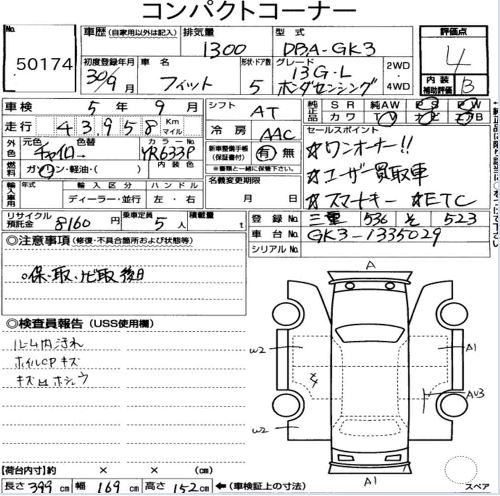 コンパクトコーナー
50174
車歴 (自家用以外は記入) 排気量 型式 評価点
1300 DBA-GK3 4
初度登録年月 車名 形状・ドア数 グレード 2WD・4WD 内装補助評価 B
30/9 フィット 5 13G・L ホンダセンシング
車検 5年 9月 シフト AT 純正品 SR 純AW PS PW
走行 43,958 Km マイル カワ TV ナビ エアB
外色 元色 色替 カラーNo 冷房 AAC セールスポイント
チャイロ YR633P ☆ワンオーナー!!
燃料 ガソリン・軽油・( ) 新車整備手帳(保証書付) 有・無 ☆ユーザー買取車
※書類と一緒に保管下さい ☆スマートキー ☆ETC
輸入車用 年式 輸入区分 ハンドル 名義変更期限
年 ディーラー・並行 左・右 月 日
リサイクル預託金 8160円 乗車定員 5人 積載量 t 登録No 三重 536 そ 523
車台No GK3-1335029
シリアルNo
◎注意事項 (修復・不具合箇所および状態等)
○保・取・ナビ取後日
◎検査員報告 (USS使用欄)
ルーム内汚れ
ホイルCPキズ
A
w2
A1
w2
AU3
A1
【荷台内寸】 × × (cm)
長さ 399cm 幅 169cm 高さ 152cm ←(車検証上の寸法)
スペア